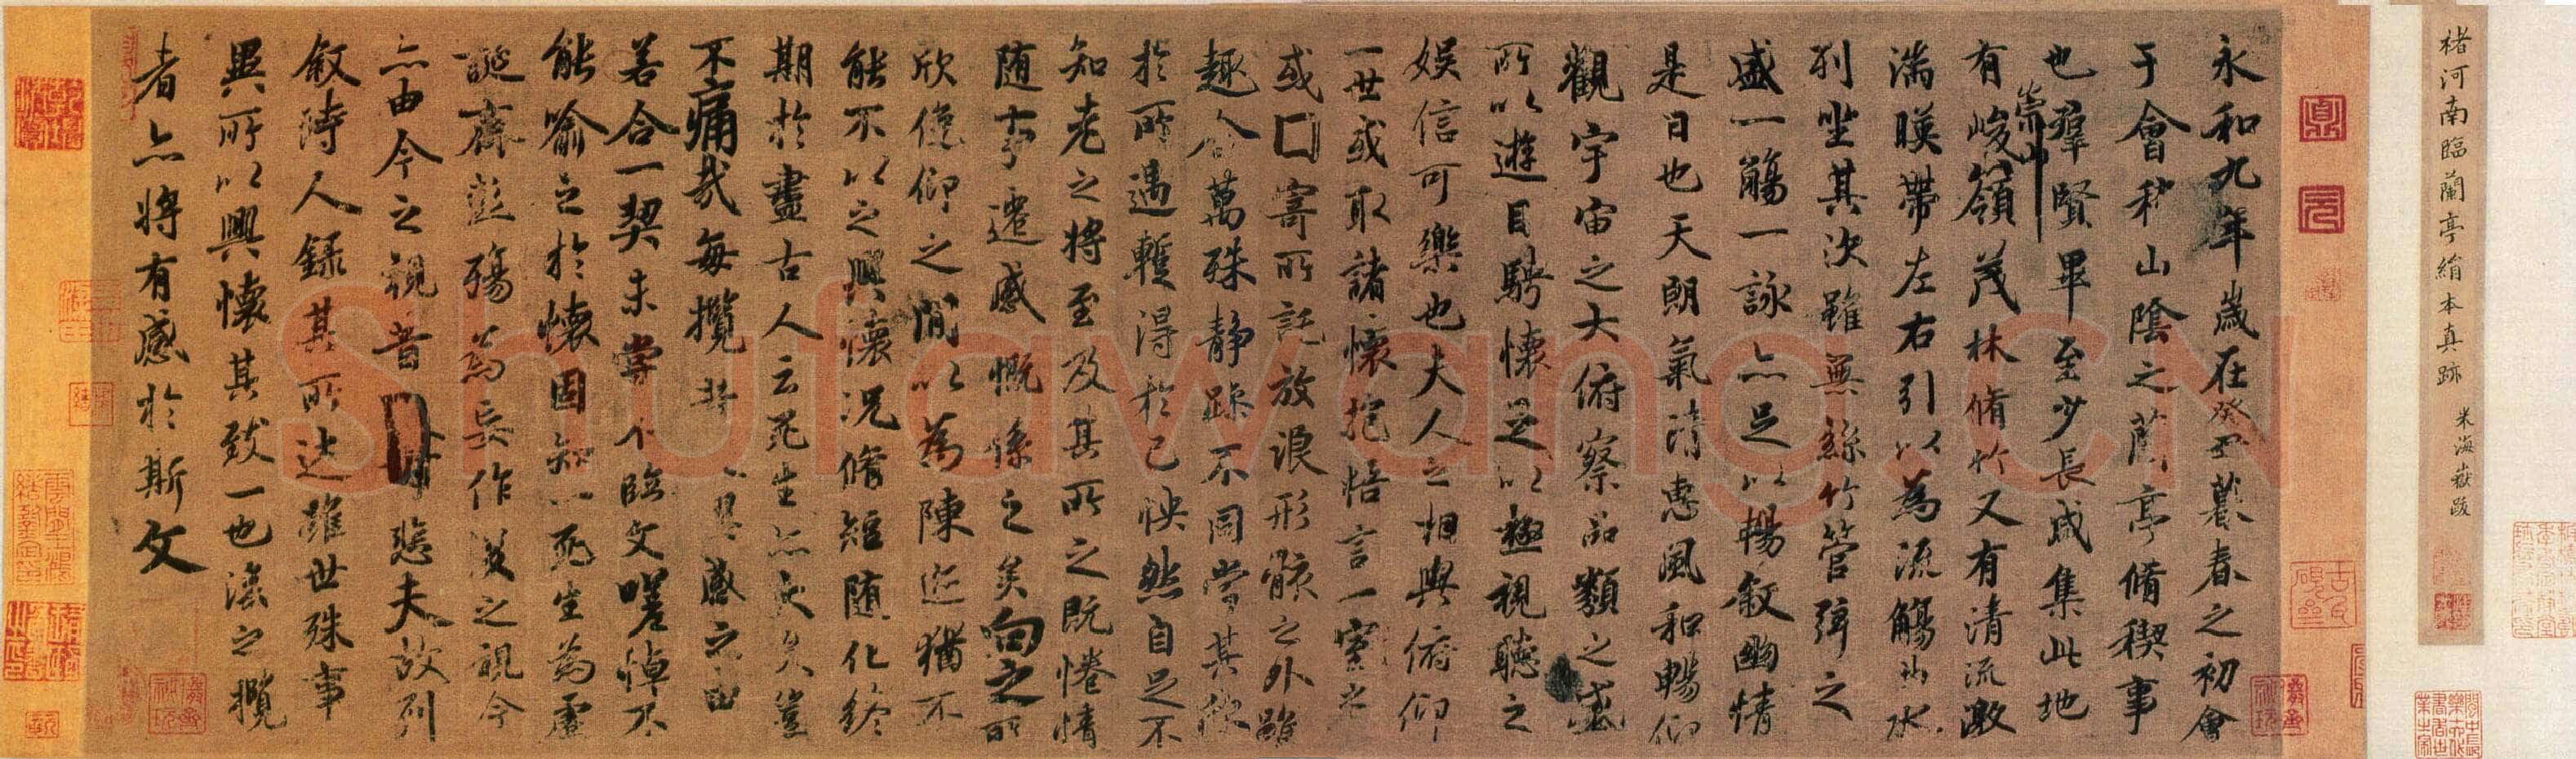 褚河南臨蘭亭絹本真跡 米海嶽跋
永和九年歲在癸丑暮春之初會
于會稽山陰之蘭亭脩稧事
也羣賢畢至少長咸集此地
有崇山峻領茂林脩竹又有清流激
湍暎帶左右引以為流觴曲水
列坐其次雖無絲竹管弦之
盛一觴一詠亦足以暢敘幽情
是日也天朗氣清惠風和暢仰
觀宇宙之大俯察品類之盛
所以遊目騁懷足以極視聽之
娛信可樂也夫人之相與俯仰
一世或取諸懷抱悟言一室之
或囗寄所託放浪形骸之外雖
趣舍萬殊靜躁不同當其欣
於所遇暫得於己怏然自足不
知老之將至及其所之既惓情
随事遷感慨係之矣向之所
欣俛仰之閒以為陳迹猶不
能不以之興懷況脩短随化終
期於盡古人云死生亦大矣豈
不痛哉每攬昔人興感之由
若合一契未嘗不臨文嗟悼不
能喻之於懷固知一死生為虛
誕齊彭殤為妄作後之視今
亦由今之視昔悲夫故列
敘時人錄其所述雖世殊事
異所以興懷其致一也後之攬
者亦將有感於斯文
Shufawang.CN